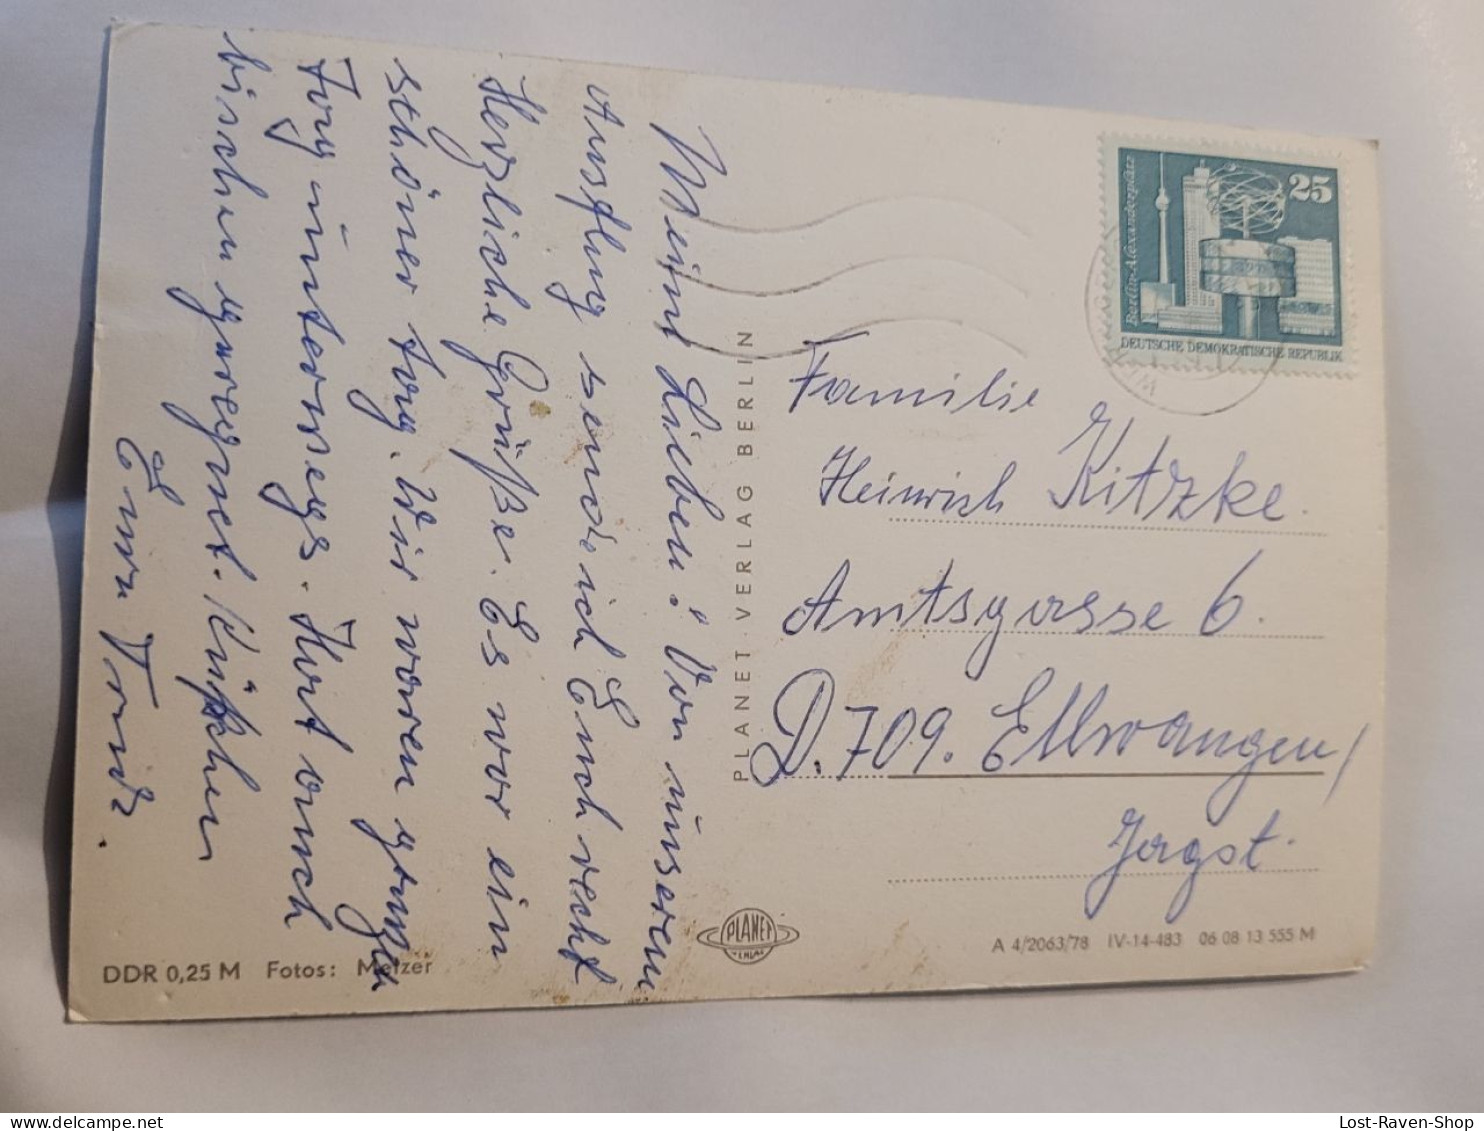 Meine Lieben! Von unserem
Ausflug sende ich Euch recht
Herzliche Grüße. Es war ein
schöner Tag. Wir waren ganzen
Tag unterwegs. Hat auch
bischen geregnet. Küßchen
Eure
PLANET VERLAG BERLIN
25
Berlin-Alexanderplatz
DEUTSCHE DEMOKRATISCHE REPUBLIK
Familie
Heinrich Kitzke.
Amtsgasse 6.
D. 709. Ellwangen/
Jagst.
PLANET
VERLAG
DDR 0,25 M Fotos: Metzer
A 4/2063/78 IV-14-483 06 08 13 555 M
Lost-Raven-Shop